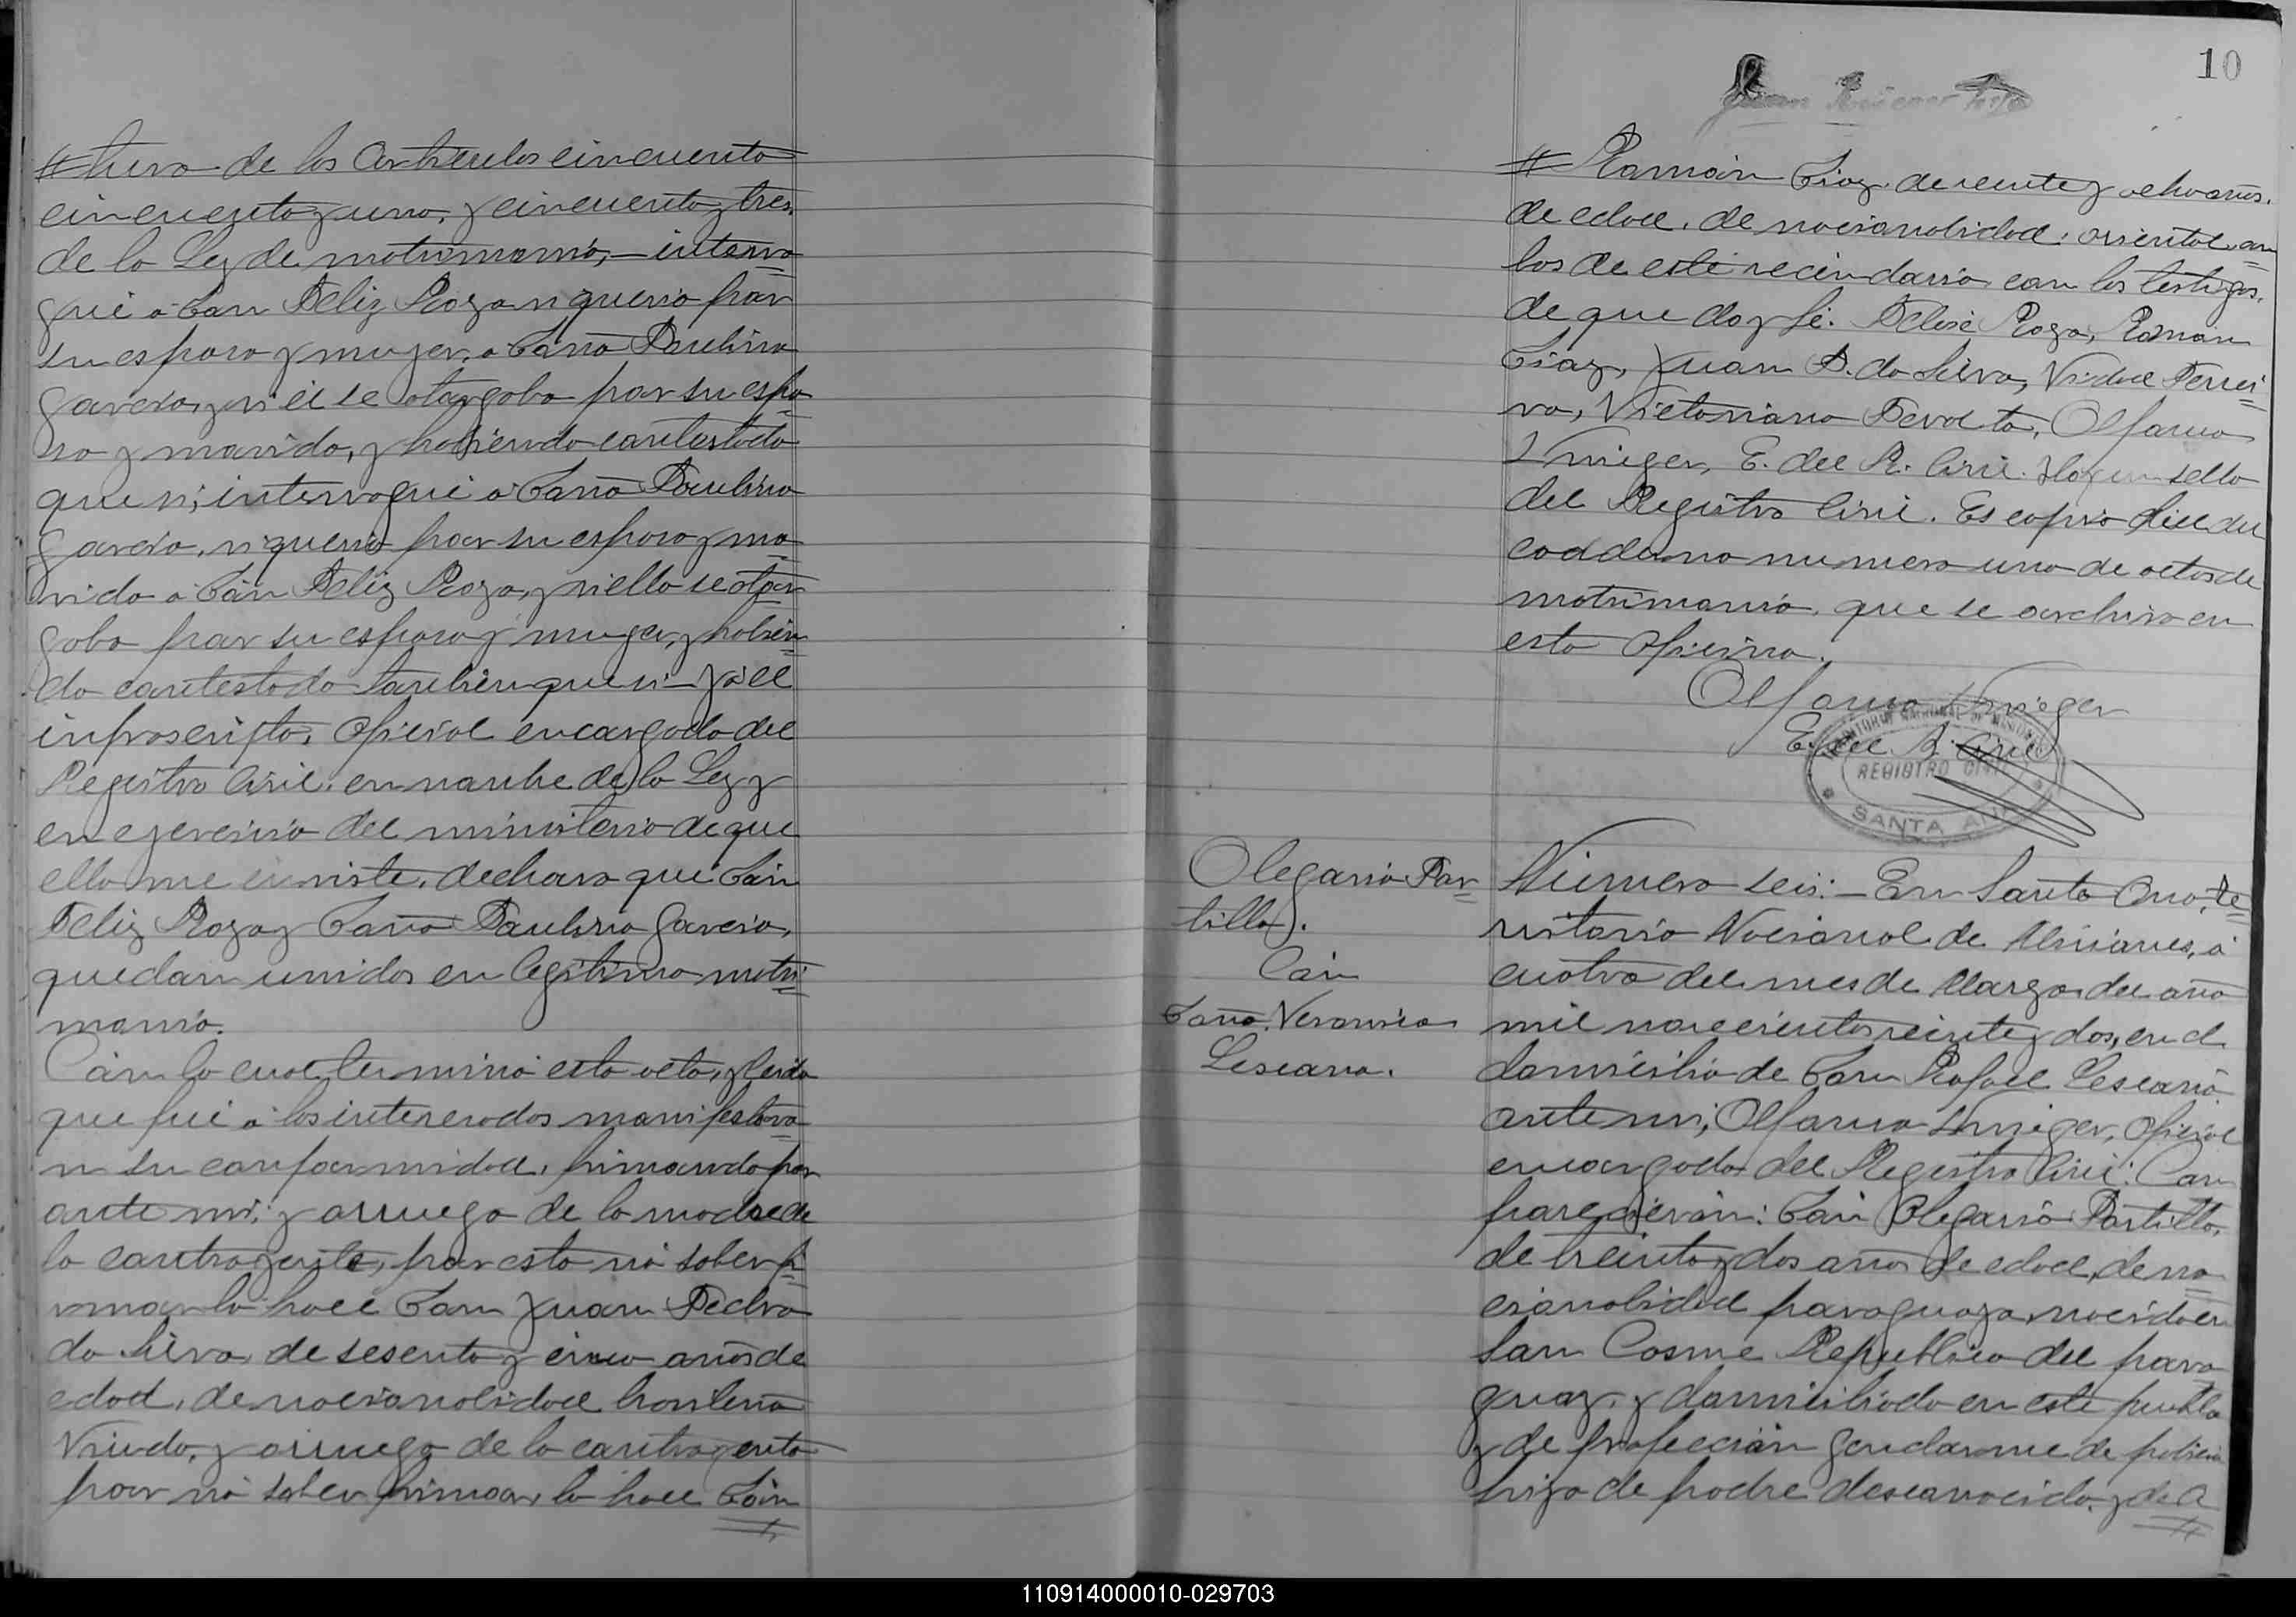 # tura de los Articulos cincuenta
cincuenta y uno, y cincuenta y tres,
de la Ley de matrimonio, – interro
gué a Don Feliz Roza si queria por
su esposa y mujer, a Doña Paulina
Garcia, y si él se otorgaba por su espo
so y marido, y habiendo contestado
que si, interrogué a Doña Paulina
Garcia, si queria por su esposo y ma
rido a Dón Feliz Roza, y si ella se otor
gaba por su esposa y muger, y habien
do contestado tambien que si – y o él
infrascripto, Oficial encargado del
Registro Civil. en nombre de la Ley y
en egercicio del ministerio de que
ella me inviste, declaro que Dón
Feliz Roza y Doña Paulina Garcia,
quedan unidos en legitimo matri
monio.
Cón lo cual terminó esta acta, y leida
que fué a los interesados manifestaro
n su conformidad, firmando por
ante mi; y a ruego de la madre de
la contrayente, por esta nó saber fi
rmar lo hace Don Juan Pedro
da Silva, de sesenta y cinco años de
edad, de nacionalidad brasilera
Viudo, y a ruego de la contrayente
por nó saber firmar, lo hace Dón
#
10
# Ramón Diaz, de veinte y ocho años.
de edad, de nacionalidad, oriental, am
bos de este vecindario, con los testigos,
de que doy fé. Felixe Roza, Ramón
Diaz, Juan P. da Silva, Vidal Ferrei
ra, Victoriano Peralta, Alfonso
Krieger, E. del R. Civil. Hay un sello
del Registro Civil. Es copia fiel del
cuaderno numero uno de actos de
matrimonio, que se archiva en
esta Oficina.
Alfonso Krieger
E. del R. Civil
TERRITORIO NACIONAL DE MISIONES
REGISTRO CIVIL
SANTA ANA
Olegario Por
tillo.
Cón
Doña. Veronica
Lescano.
Número seis: – En Santa Ana, te
rritorio Nacional de Misiones, á
cuatro del mes de Marzo del año
mil novecientos veinte y dos, en el
domicilio de Don Rafael Lescano.
ante mi; Alfonso Krieger, Oficial
encargado del Registro Civil: Com
parecierón: Dón Olegario Portillo,
de treinta y dos años de edad, de na
cionalidad paraguaya, nacido en
San Cosme Republica del para
guay, y domiciliado en este pueblo
y de profeción gendarme de policia
hijo de padre desconocido, y de A
#
110914000010-029703